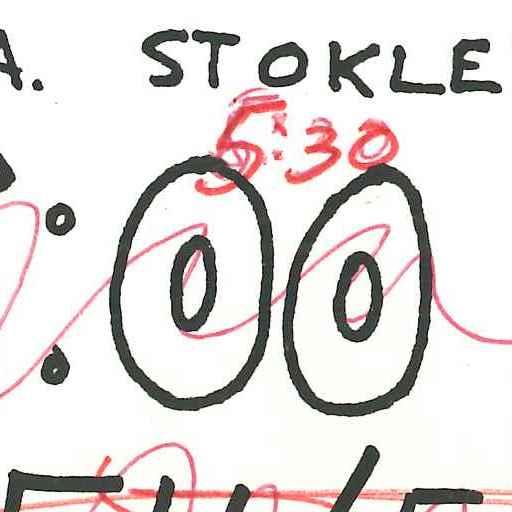 A. STOKLE
5:30
:00